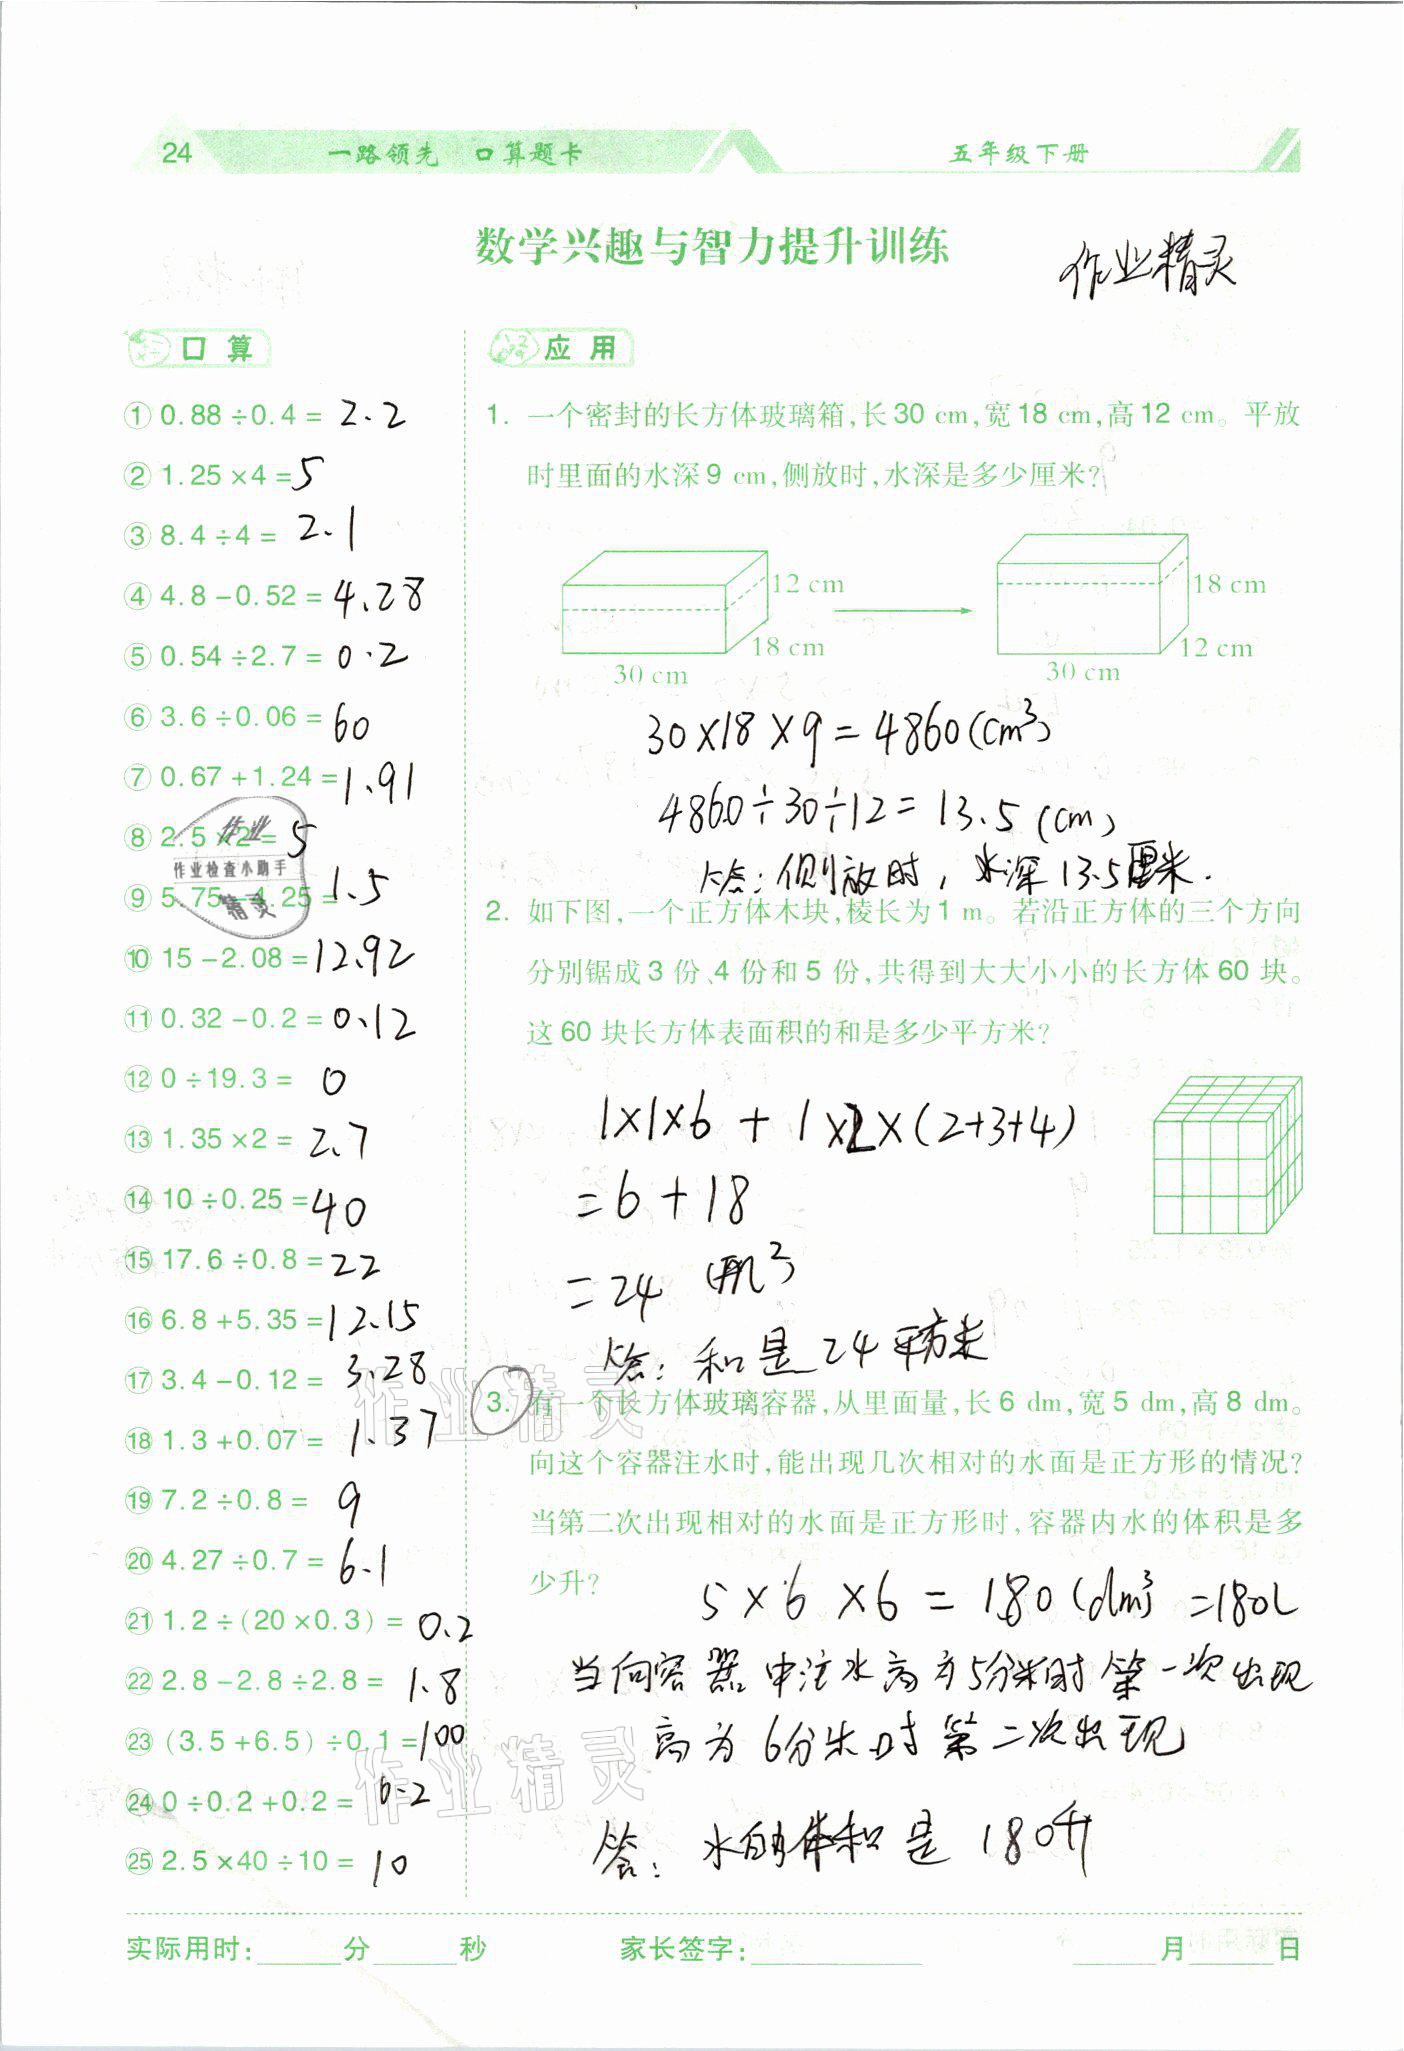 24 一路领先 口算题卡 五年级下册
数学兴趣与智力提升训练
作业精灵
口算
① 0.88÷0.4= 2.2
② 1.25×4= 5
③ 8.4÷4= 2.1
④ 4.8-0.52= 4.28
⑤ 0.54÷2.7= 0.2
⑥ 3.6÷0.06= 60
⑦ 0.67+1.24= 1.91
⑧ 2.5×2= 5
作业
作业检查小助手
精灵
⑨ 5.75-4.25= 1.5
⑩ 15-2.08= 12.92
⑪ 0.32-0.2= 0.12
⑫ 0÷19.3= 0
⑬ 1.35×2= 2.7
⑭ 10÷0.25= 40
⑮ 17.6÷0.8= 22
⑯ 6.8+5.35= 12.15
⑰ 3.4-0.12= 3.28
⑱ 1.3+0.07= 1.37
⑲ 7.2÷0.8= 9
⑳ 4.27÷0.7= 6.1
㉑ 1.2÷(20×0.3)= 0.2
㉒ 2.8-2.8÷2.8= 1.8
㉓ (3.5+6.5)÷0.1= 100
㉔ 0÷0.2+0.2= 0.2
㉕ 2.5×40÷10= 10
应用
1. 一个密封的长方体玻璃箱,长30 cm,宽18 cm,高12 cm。平放
时里面的水深9 cm,侧放时,水深是多少厘米?
12 cm
18 cm
30 cm
18 cm
12 cm
30 cm
30×18×9=4860(cm³)
4860÷30÷12=13.5(cm)
答:侧放时,水深13.5厘米.
2. 如下图,一个正方体木块,棱长为1 m。若沿正方体的三个方向
分别锯成3份、4份和5份,共得到大大小小的长方体60块。
这60块长方体表面积的和是多少平方米?
1×1×6+1×2×(2+3+4)
=6+18
=24 (m²)
答:和是24平方米
3. 有一个长方体玻璃容器,从里面量,长6 dm,宽5 dm,高8 dm。
向这个容器注水时,能出现几次相对的水面是正方形的情况?
当第二次出现相对的水面是正方形时,容器内水的体积是多
少升?
5×6×6=180(dm³)=180L
当向容器中注水高为5分米时第一次出现
高为6分米时第二次出现
答:水的体积是180升
作业精灵
作业精灵
实际用时:____分____秒 家长签字:______ ____月____日